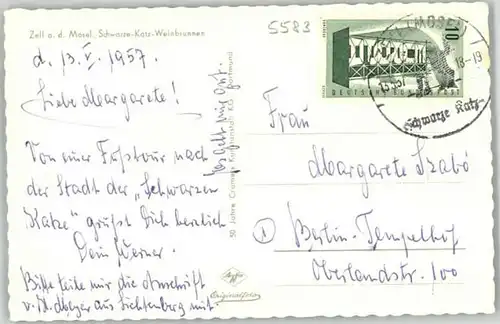 Zell a. d. Mosel, Schwarze-Katz-Weinbrunnen
5583
d. 13. V. 1957.
Liebe Margarete!
Von einer Fußtour nach
der Stadt der „Schwarzen
Katze" grüßt Dich herzlich
Dein Werner.
Bitte teile mir die Anschrift
aus Lichtenberg mit
50 Jahre Cramers Kunstanstalt KG Dortmund
Originalfoto
10
DEUTSCHE BUNDESPOST
(MOSEL)
18-19
Schwarze Katz
Frau
Margarete Szabó
Berlin-Tempelhof
Oberlandstr. 100